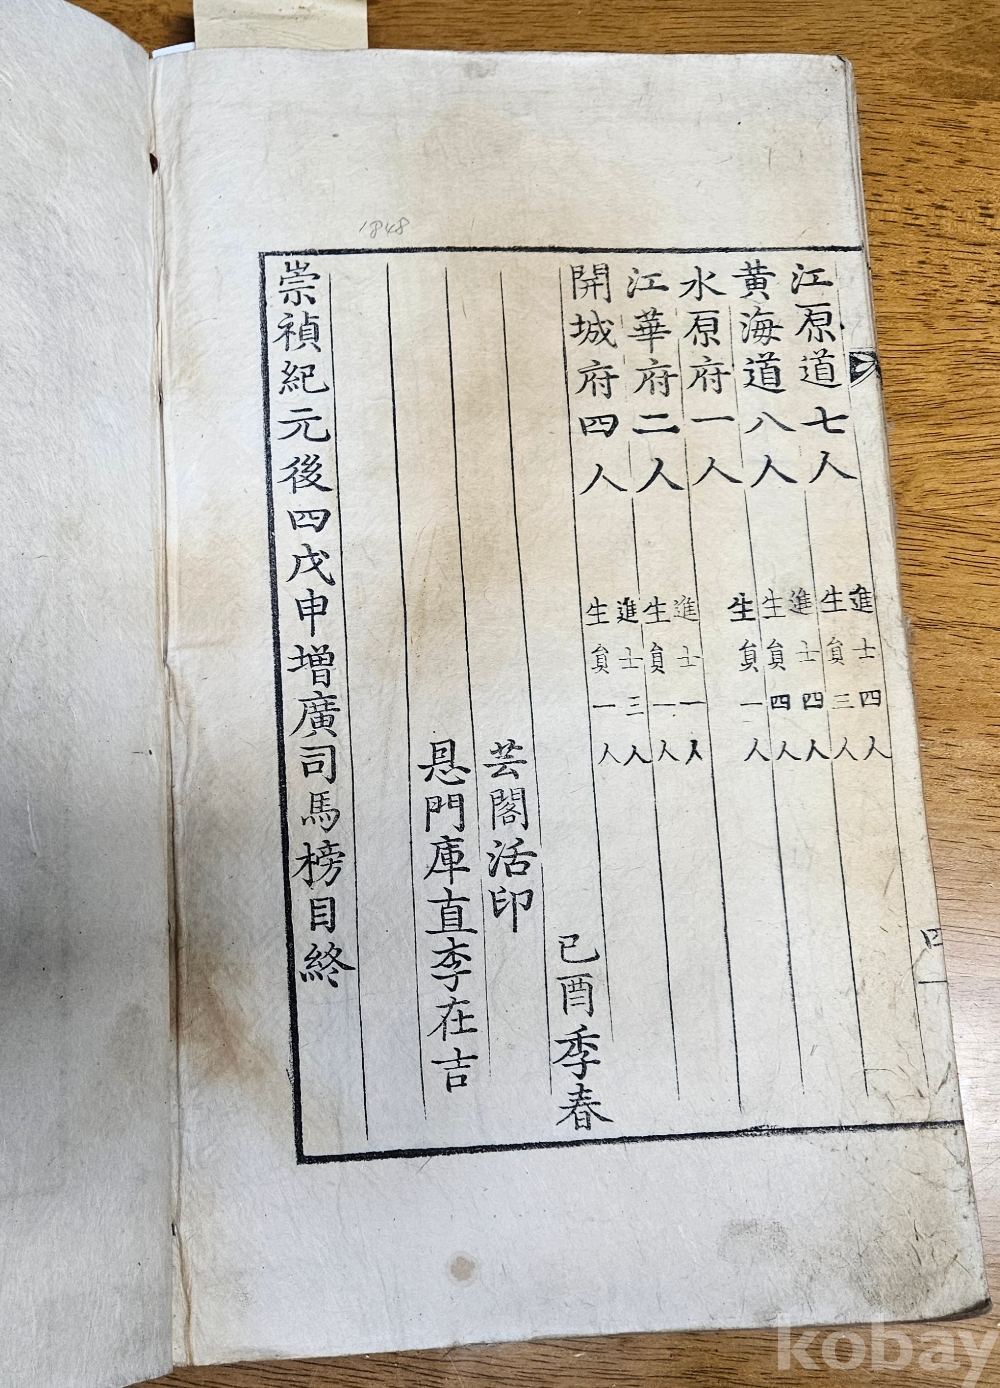 1848
江原道七人
進士四人
生貟三人
黄海道八人
進士四人
生貟四人
水原府一人
生貟一人
江華府二人
進士一人
生貟一人
開城府四人
進士三人
生貟一人
己酉季春
芸閣活印
恩門庫直李在吉
崇禎紀元後四戊申增廣司馬榜目終
kobay